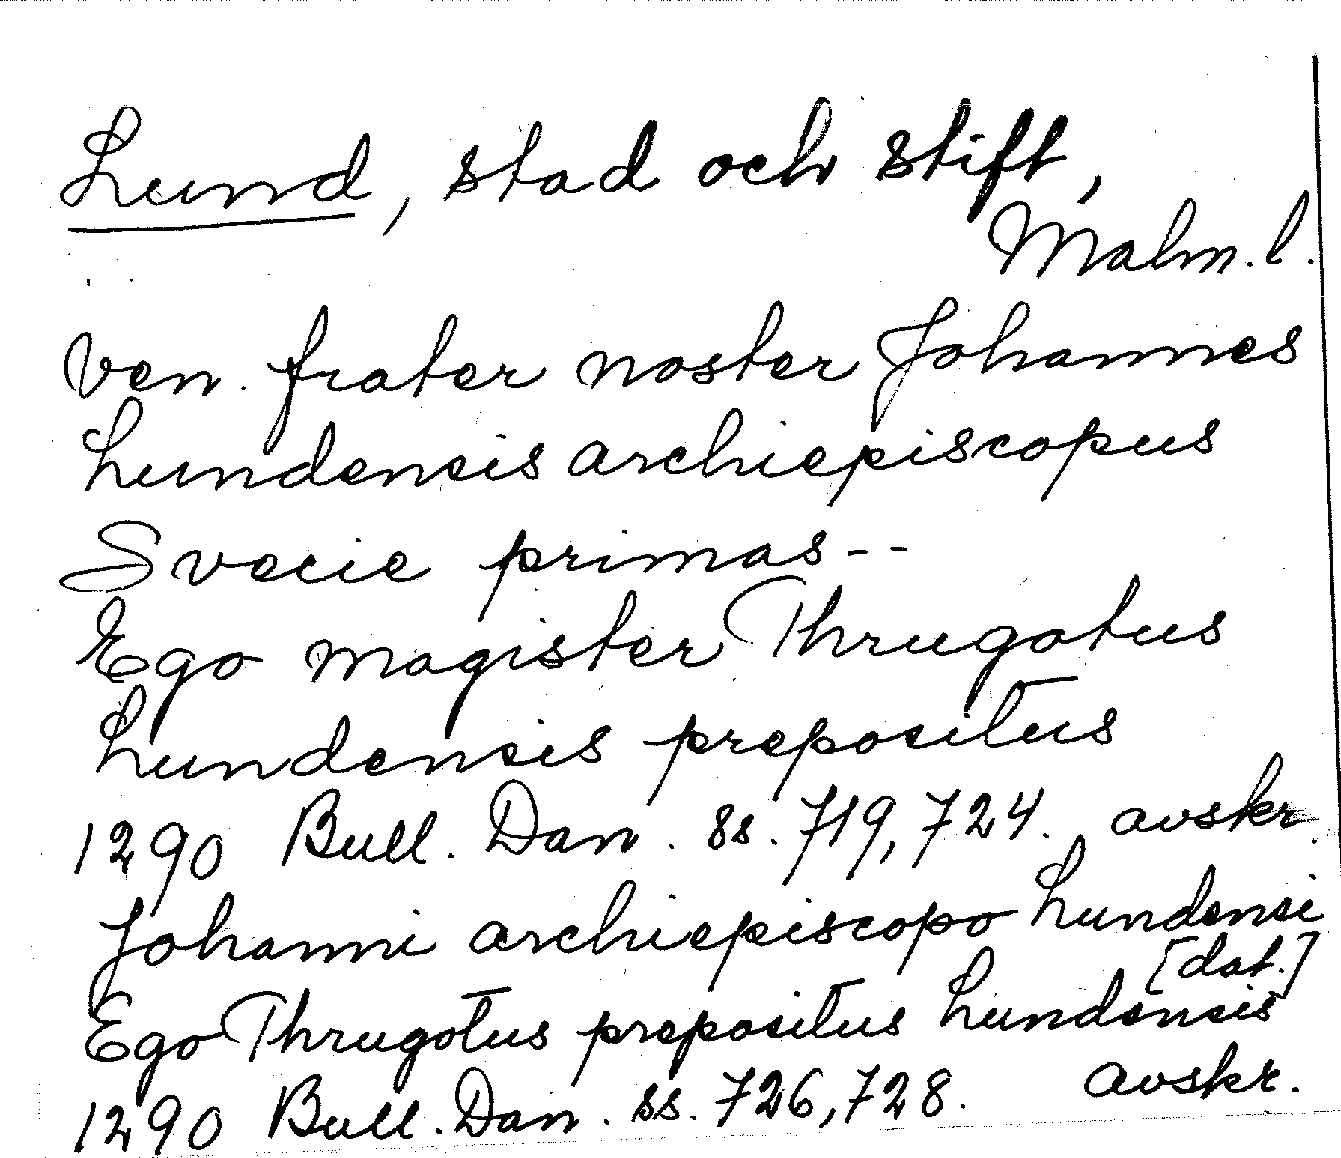 Lund, stad och stift,
Malm. l.
Ven. frater noster Johannes
Lundensis archiepiscopus
Svecie primas --
Ego magister Thrugotus
Lundensis prepositus
1290 Bull. Dan. ss. 719, 724. avskr.
Johanni archiepiscopo Lundensi
[dat.]
Ego Thrugotus prepositus Lundensis
1290 Bull. Dan. ss. 726, 728. avskr.